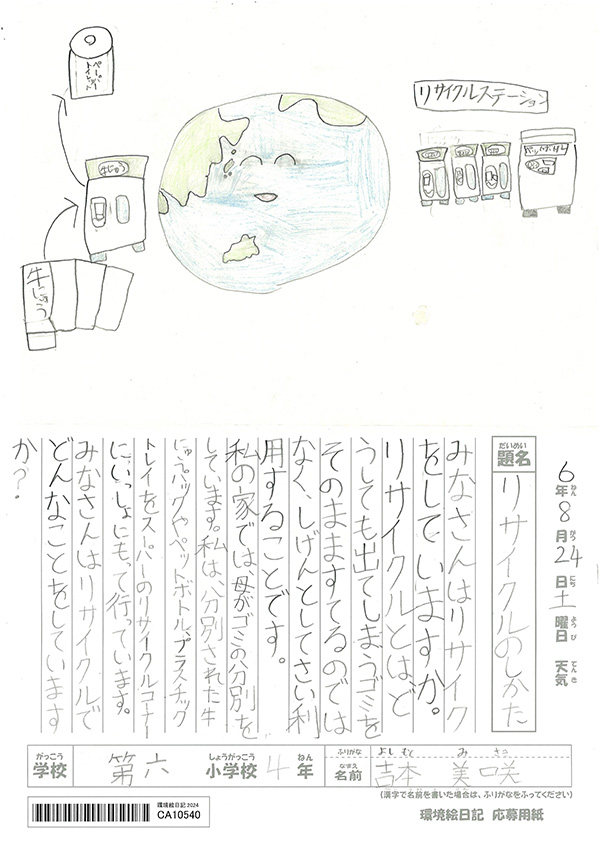 トイレット
ペーパー
リサイクルステーション
牛にゅう
ペットボトル
牛にゅう
6年8月24日土曜日 天気
ねん
がつ
にち
ようび
てんき
だいめい
題名
リサイクルのしかた
みなさんはリサイク
をしていますか。
リサイクルとは、ど
うしても出てしまうゴミを
そのまますてるのでは
なく、しげんとしてさい利
用することです。
私の家では、母がゴミの分別を
しています。私は、分別された牛
にゅうパックやペットボトル、プラスチック
トレイをスーパーのリサイクルコーナー
に、いっしょにもって行っています。
みなさんはリサイクルで
どんなことをしています
か?
がっこう
学校
第六
しょうがっこう
小学校
4年
ねん
ふりがな
よしもと みさき
なまえ
名前
吉本 美咲
(漢字で名前を書いた場合は、ふりがなをふってください)
環境絵日記2024
CA10540
環境絵日記 応募用紙